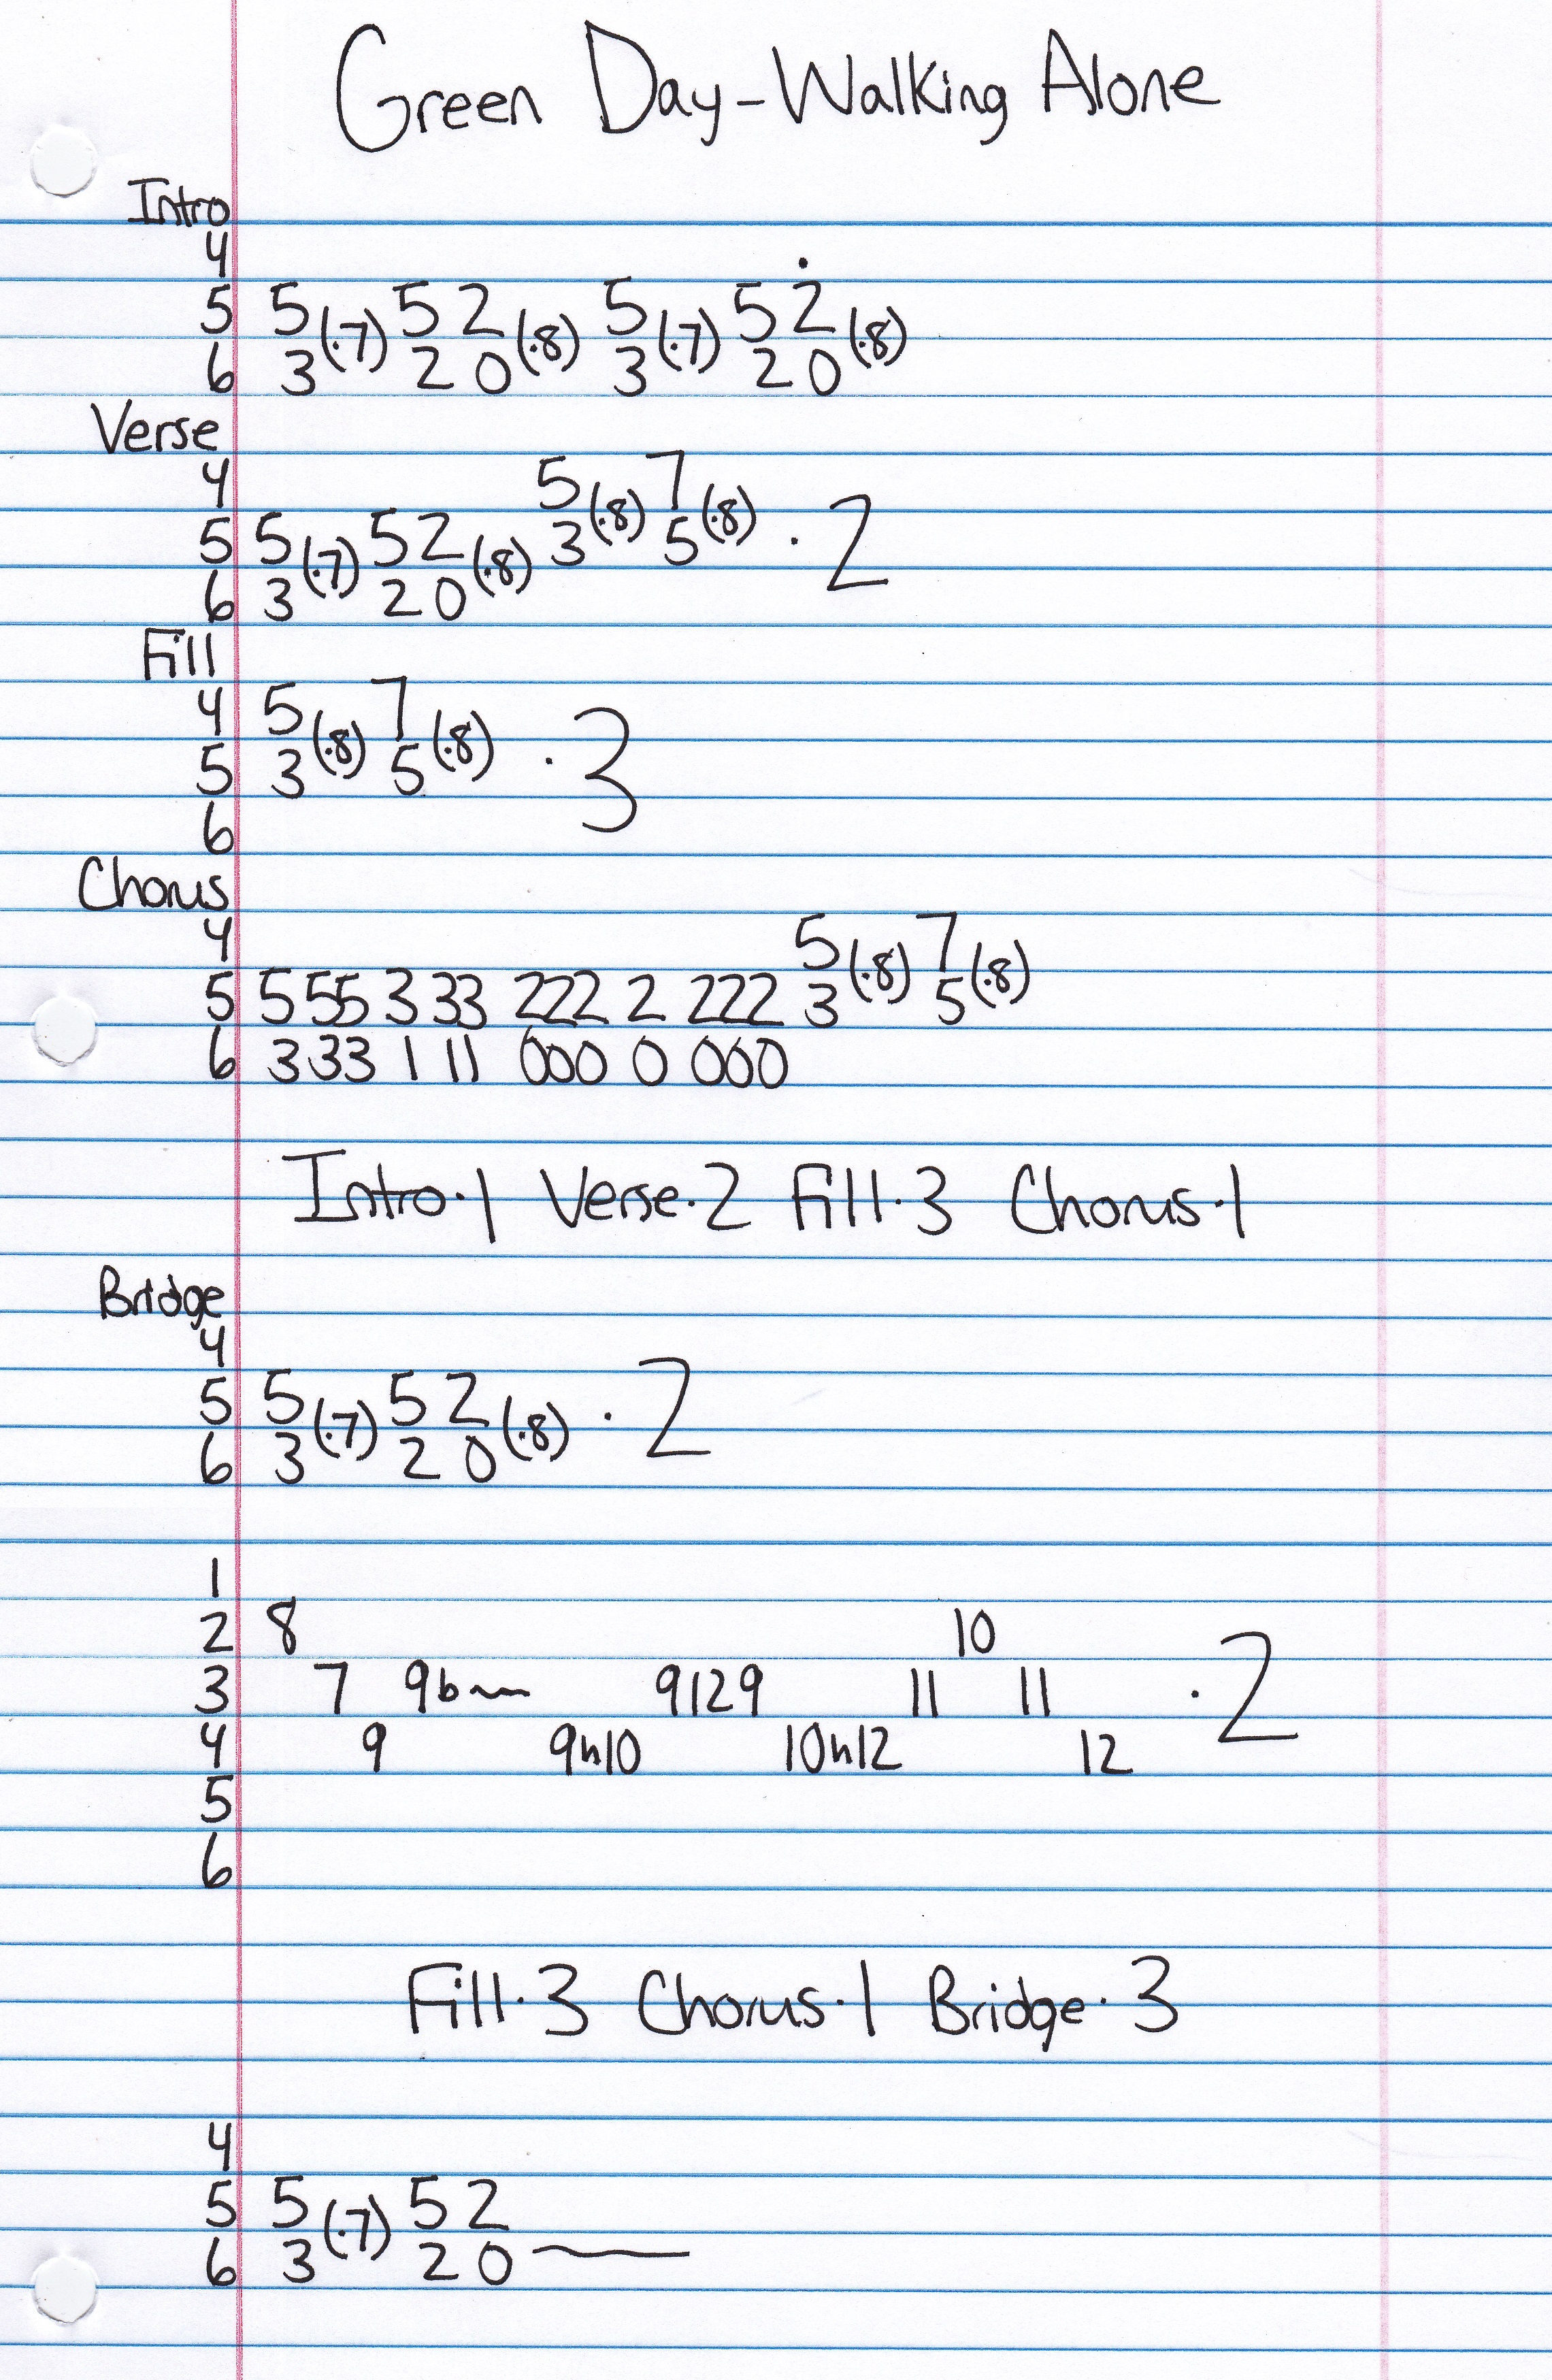 Green Day-Walking Alone
Intro
4
5 5(·7) 5 2(·8) 5(·7) 5 2(·8)
6 3 2 0 3 2 0
Verse
4 5(·8) 7(·8)
5 5(·7) 5 2(·8) 3 5 ·2
6 3 2 0
Fill
4 5(·8) 7(·8) ·3
5 3 5
6
Chorus
4 5(·8) 7(·8)
5 5 55 3 33 222 2 222 3 5
6 3 33 1 11 000 0 000
Intro·1 Verse·2 Fill·3 Chorus·1
Bridge
4
5 5(·7) 5 2(·8) ·2
6 3 2 0
1
2 8 10
3 7 9b~ 9 12 9 11 11 ·2
4 9 9h10 10h12 12
5
6
Fill·3 Chorus·1 Bridge·3
4
5 5(·7) 5 2
6 3 2 0